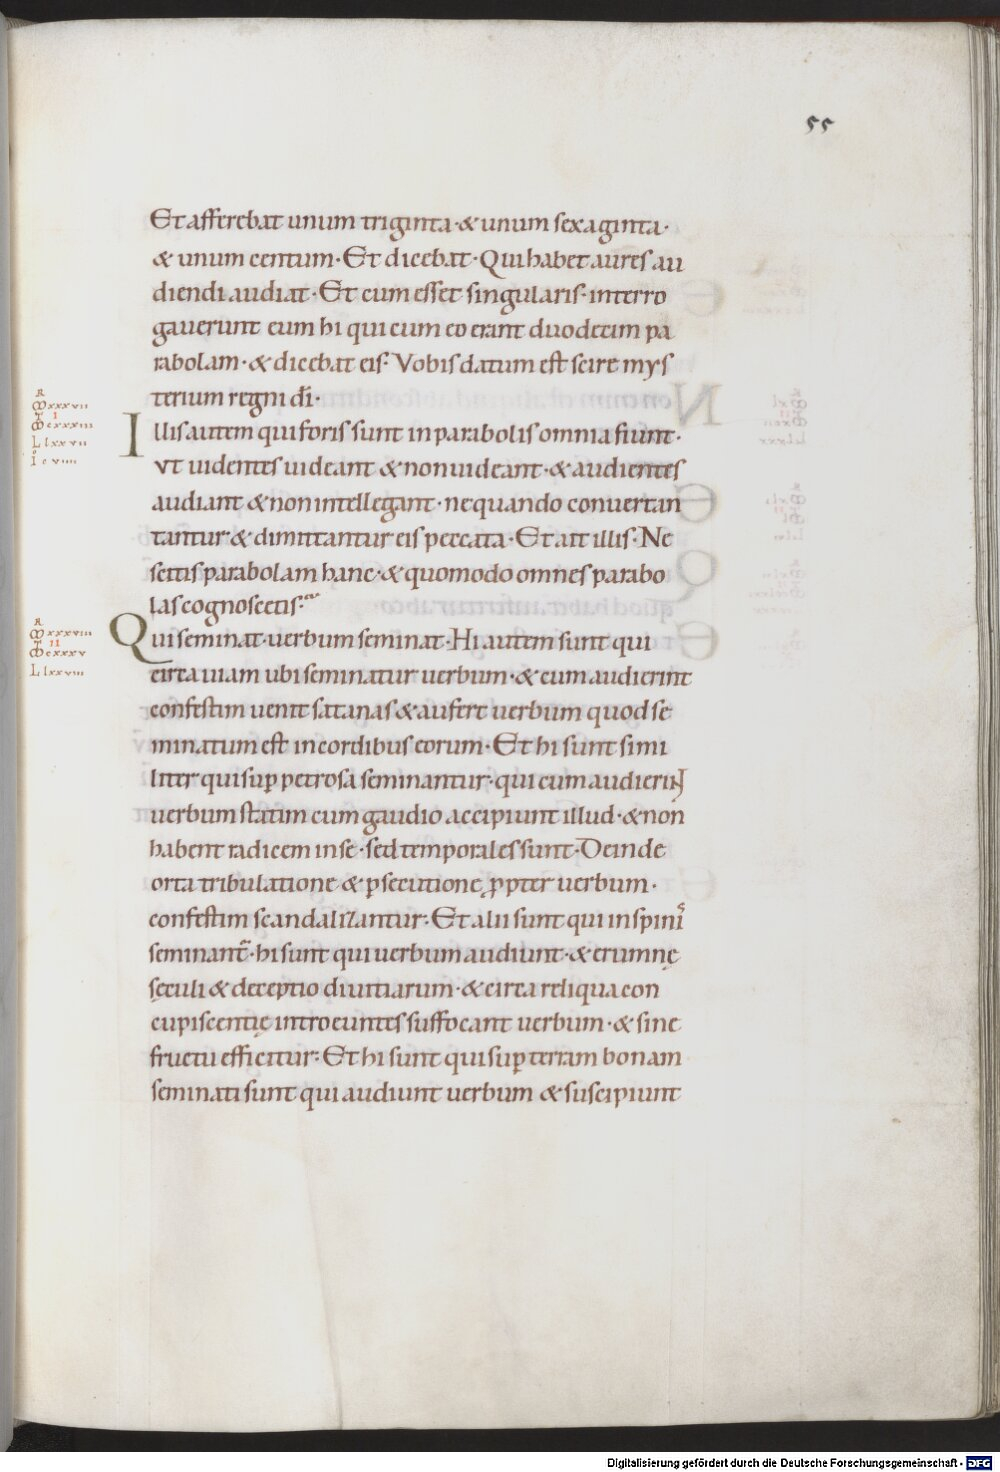 55
Et afferebat unum triginta · & unum sexaginta ·
& unum centum · Et dicebat · Qui habet aures au
diendi audiat · Et cum esset singularis · interro
gauerunt eum hi qui cum eo erant duodecim pa
rabolam · & dicebat eis · Vobis datum est scire mys
terium regni dī ·
R
Mxxxvii
T I
Mcxxxiii
Llxxvii
Illis autem qui foris sunt in parabolis omnia fiunt ·
vt uidentes uideant & non uideant · & audientes
audiant & non intellegant · nequando conuertan
tantur & dimittantur eis peccata · Et ait illis · Ne
scitis parabolam hanc · & quomodo omnes parabo
las cognoscetis ·
R
Mxxxviii
T II
Mcxxxv
Llxxviii
Qui seminat · uerbum seminat · Hi autem sunt qui
circa uiam ubi seminatur uerbum · & cum audierint
confestim uenit satanas & aufert uerbum quod se
minatum est in cordibus eorum · Et hi sunt simi
liter qui sup petrosa seminantur · qui cum audierint
uerbum statim cum gaudio accipiunt illud · & non
habent radicem in se · sed temporales sunt · Deinde
orta tribulatione & psecutione ppter uerbum ·
confestim scandalizantur · Et alii sunt qui in spinis
seminant̄ · hi sunt qui uerbum audiunt · & erumnę
sęculi & deceptio diuitiarum · & circa reliqua con
cupiscentię introeuntes suffocant uerbum · & sine
fructu efficitur : Et hi sunt qui sup terram bonam
seminati sunt qui audiunt uerbum & suscipiunt
Digitalisierung gefördert durch die Deutsche Forschungsgemeinschaft - DFG